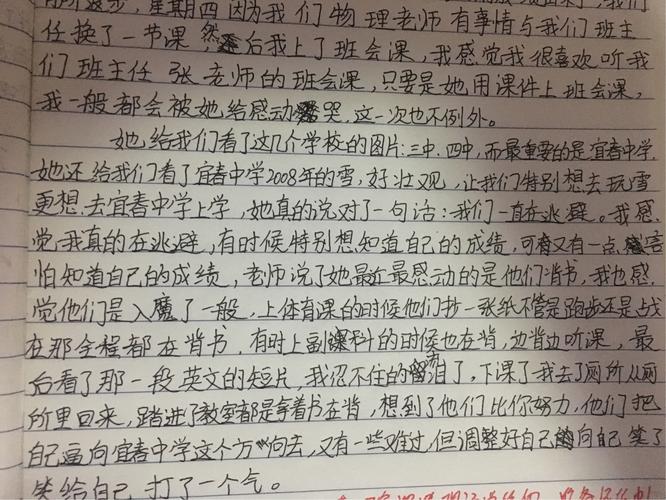 星期四因为我们物理老师有事情与我们班主
任换了一节课,然后我上了班会课,我感觉我很喜欢听我
们班主任张老师的班会课,只要是她用课件上班会课,
我一般都会被她给感动哭,这一次也不例外。
她给我们看了这几个学校的图片:三中、四中,而最重要的是宜春中学,
她还给我们看了宜春中学2008年的雪,好壮观,让我们特别想去玩雪
更想去宜春中学上学,她真的说对了一句话:我们一直在逃避。我感
觉,我真的在逃避,有时候特别想知道自己的成绩,可又有一点害
怕知道自己的成绩,老师说了她最近最感动的是他们背书,我也感
觉他们是入魔了一般,上体育课的时候他们抄一张纸不管是跑步还是占
在那全程都在背书,有时上副科的时候也在背,边背边听课,最
后看了那一段英文的短片,我忍不住的泪了,下课了我去了厕所从厕
所里回来,踏进了教室都是拿着书在背,想到了他们比你努力,他们把
自己逼向宜春中学这个方向去,又有一些难过,但调整好自己向自己笑了
笑给自己打了一个气。